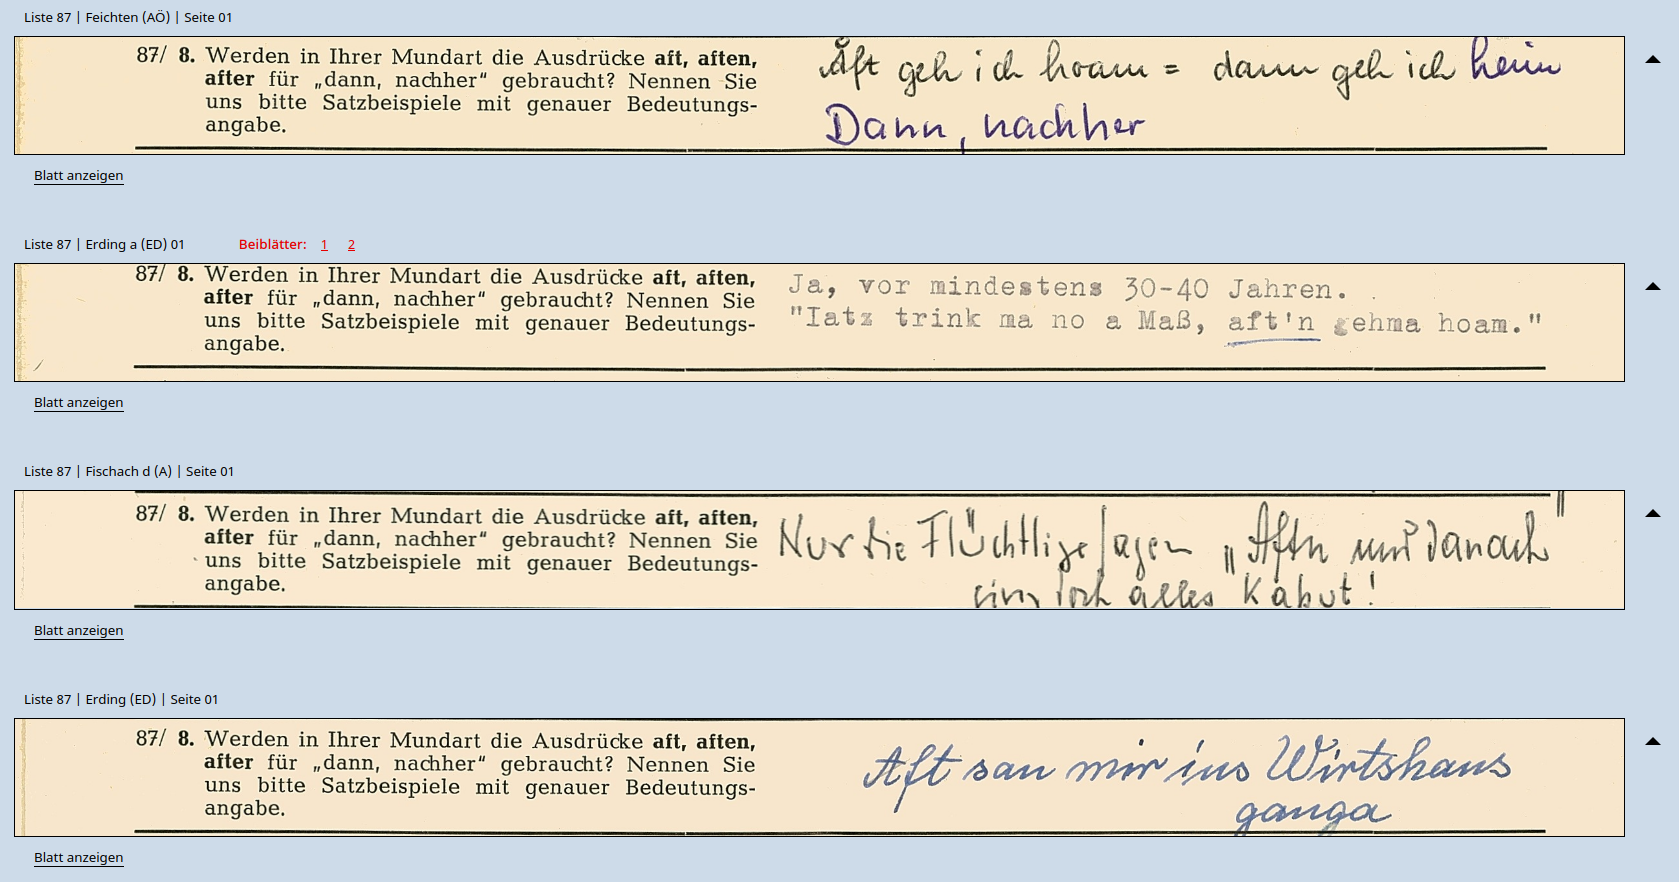 Liste 87 | Feichten (AÖ) | Seite 01
87/ 8. Werden in Ihrer Mundart die Ausdrücke aft, aften,
after für „dann, nachher“ gebraucht? Nennen Sie
uns bitte Satzbeispiele mit genauer Bedeutungs-
angabe.
Åft geh ich hoam = dann geh ich heim
Dann, nachher
Blatt anzeigen
Liste 87 | Erding a (ED) 01 Beiblätter: 1 2
87/ 8. Werden in Ihrer Mundart die Ausdrücke aft, aften,
after für „dann, nachher“ gebraucht? Nennen Sie
uns bitte Satzbeispiele mit genauer Bedeutungs-
angabe.
Ja, vor mindestens 30-40 Jahren.
"Iatz trink ma no a Maß, aft'n gehma hoam."
Blatt anzeigen
Liste 87 | Fischach d (A) | Seite 01
87/ 8. Werden in Ihrer Mundart die Ausdrücke aft, aften,
after für „dann, nachher“ gebraucht? Nennen Sie
uns bitte Satzbeispiele mit genauer Bedeutungs-
angabe.
Nur die Flüchtlige sagen „Aftn und danach"
alles Kabut!
Blatt anzeigen
Liste 87 | Erding (ED) | Seite 01
87/ 8. Werden in Ihrer Mundart die Ausdrücke aft, aften,
after für „dann, nachher“ gebraucht? Nennen Sie
uns bitte Satzbeispiele mit genauer Bedeutungs-
angabe.
Aft san mir ins Wirtshaus
ganga
Blatt anzeigen